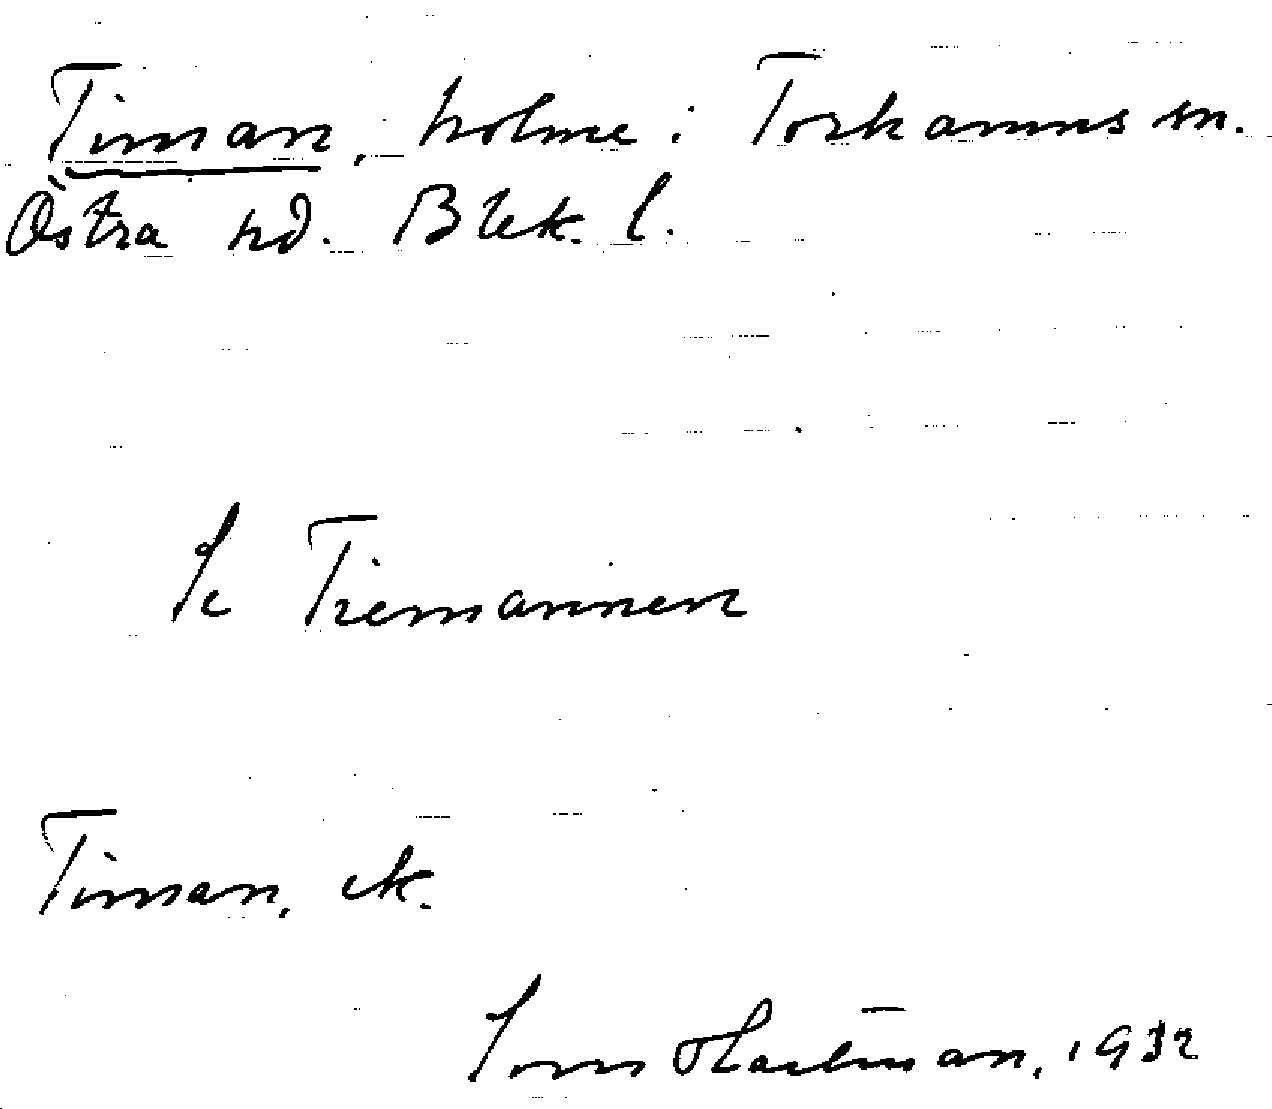 Timan, holme i Torhamns sn.
Östra hd. Blek. l.
Tiemannen
Timan, ek.
Hartman, 1932